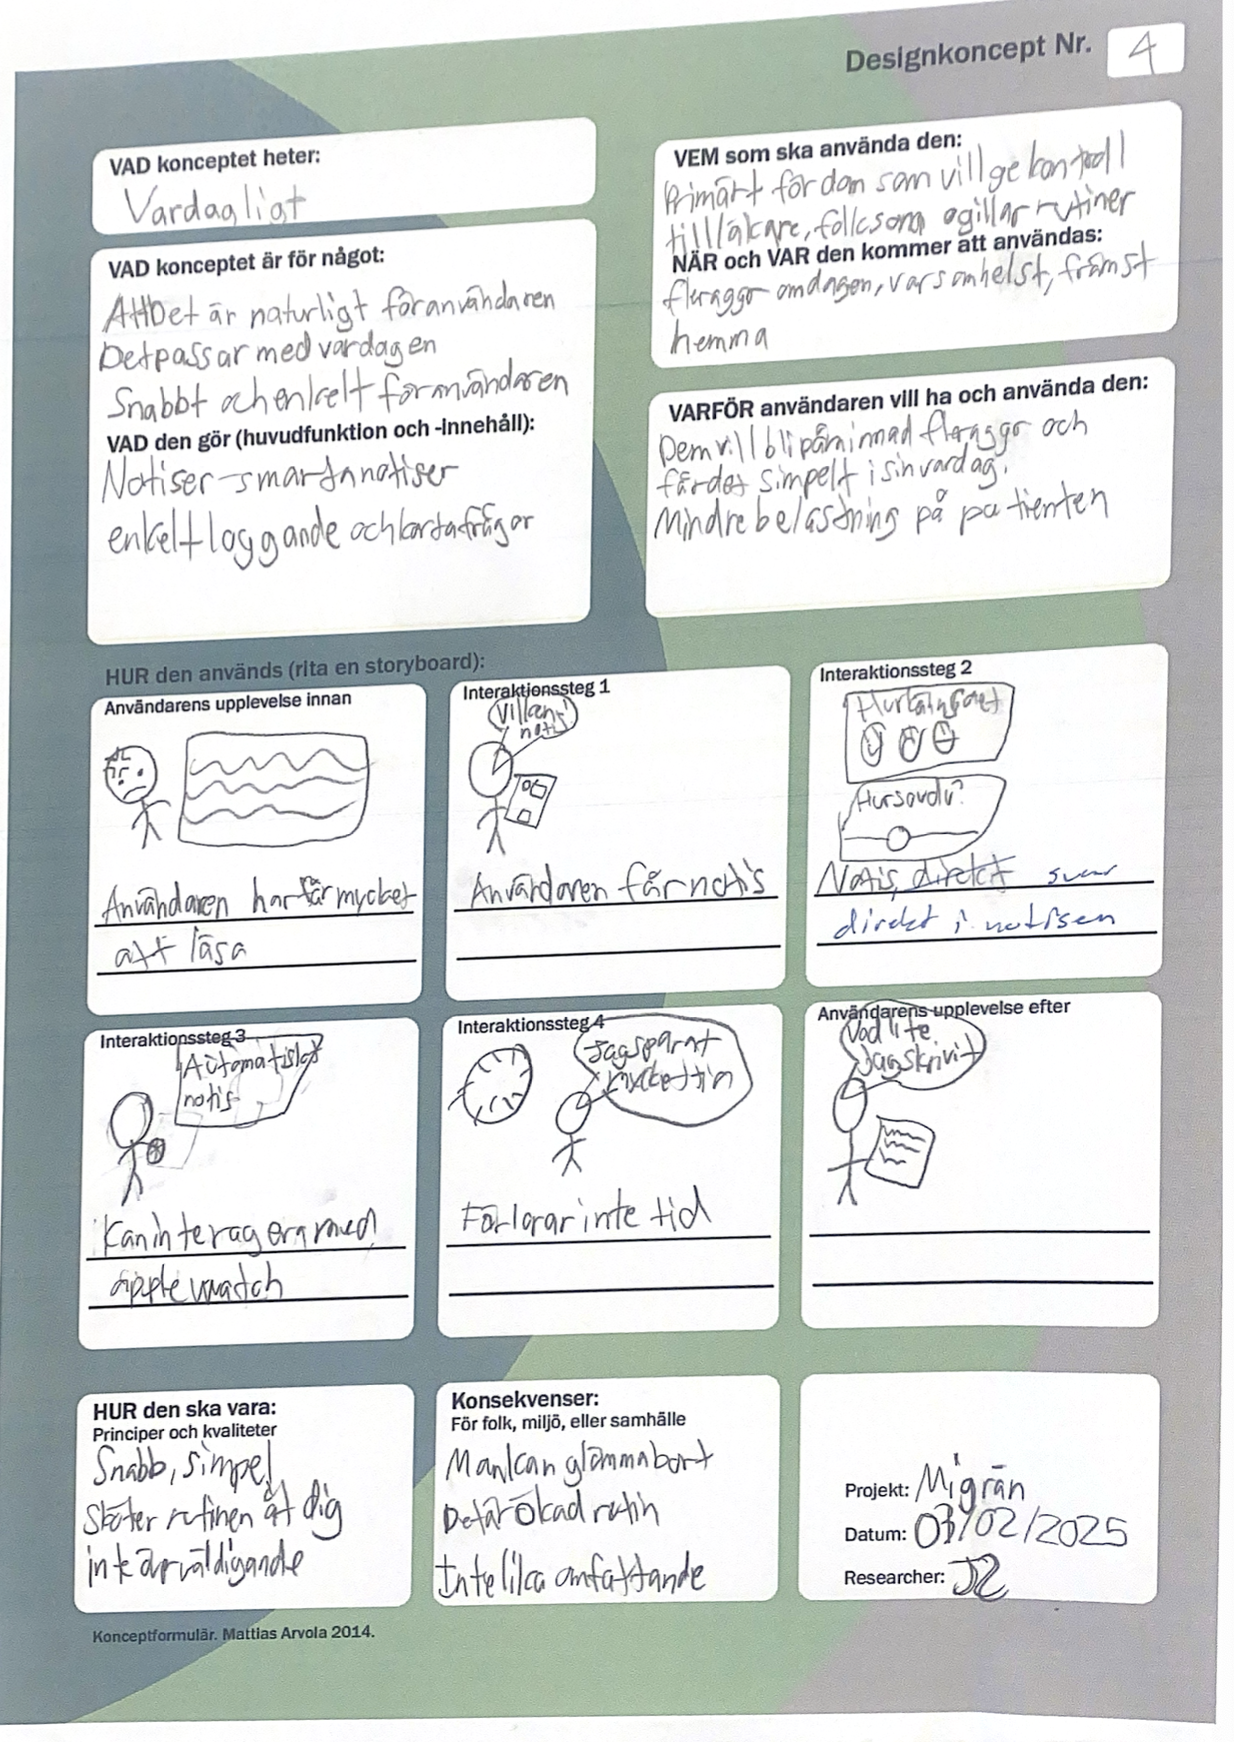 Designkoncept Nr. 4
VAD konceptet heter:
Vardagligt
VAD konceptet är för något:
Att Det är naturligt för användaren
Det passar med vardagen
Snabbt och enkelt för användaren
VAD den gör (huvudfunktion och -innehåll):
Notiser - smarta notiser
enkelt loggande och korta frågor
VEM som ska använda den:
Primärt för dom som vill ge kontroll
till läkare, folk som ogillar rutiner
NÄR och VAR den kommer att användas:
flera ggr om dagen, var som helst, främst
hemma
VARFÖR användaren vill ha och använda den:
Dem vill bli påminnad flera ggr och
får det simpelt i sin vardag.
Mindre belastning på patienten
HUR den används (rita en storyboard):
Användarens upplevelse innan
Användaren har för mycket
att läsa
Interaktionssteg 1
Vilken
notis
Användaren får notis
Interaktionssteg 2
Hur känns det
Hur sov du?
Notis, direkt svar
direkt i notisen
Interaktionssteg 3
Automatiskt
notis
Kan interagera med
apple watch
Interaktionssteg 4
Jag sparat
mycket tid
Förlorar inte tid
Användarens upplevelse efter
Vad lite
jag skrivit
HUR den ska vara:
Principer och kvaliteter
Snabb, simpel
Sköter rutinen åt dig
inte överväldigande
Konsekvenser:
För folk, miljö, eller samhälle
Man kan glömma bort
Det är Ökad rutin
Inte lika omfattande
Projekt: Migrän
Datum: 03/02/2025
Researcher:
Konceptformulär. Mattias Arvola 2014.